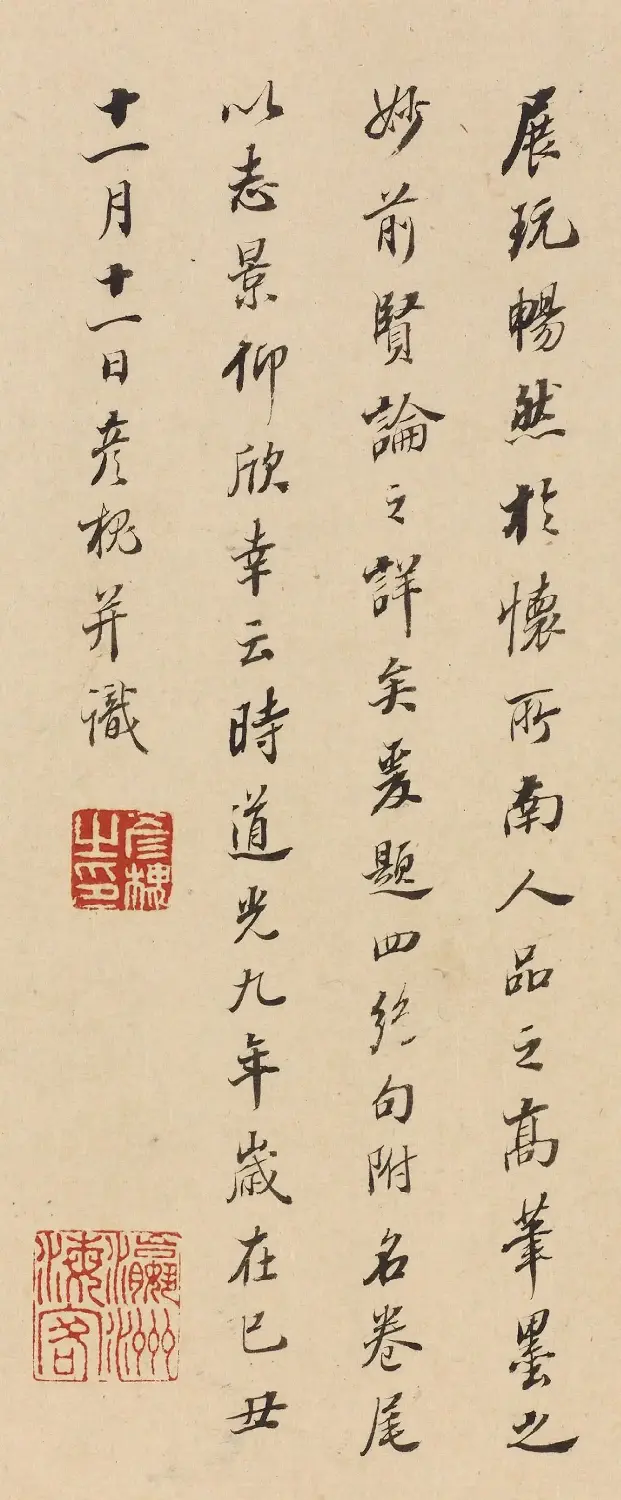 展玩暢然於懷所南人品之高筆墨之
妙前賢論之詳矣爰題四絶句附名卷尾
以志景仰欣幸云時道光九年歲在己丑
十一月十一日彥槐并識
彥槐之印
瀛洲海客